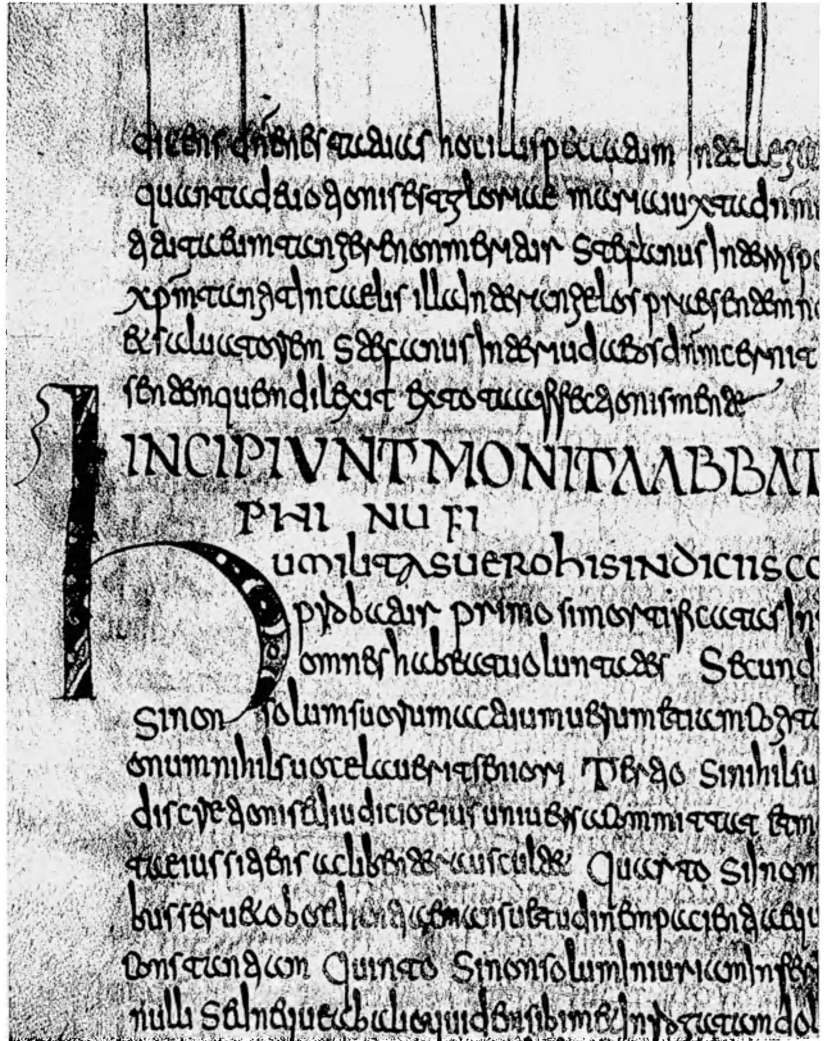 dicens dne ne statuas hoc illis peccatum Intelleg
quanta deuotionis est gloriae maria iuxta dnm
eum tangere non meruit Stephanus Inter ipso
xpm tangit In caelis illa Inter angelos praesentem n
et saluatorem Stephanus Inter iudaeos dnm cernit
sentem quem dilexit ex tota affectionis mente
INCIPIUNT MONITA ABBAT
PHI NU FI
humilitas uero his indiciis co
probatur primo si mortificatas In
omnes habeat uoluntates Secund
Si non solum suorum actuum uerum etiam cogitati
onum nihil suo celauerit seniori Tertio Si nihil su
discretionis sed iudicio eius uniuersa committat et m
ta eius sitiens ac libenter auscultet Quarto Si In om
bus seruet oboedientiae mansuetudinem pacientiaequ
constantiam Quinto Si non solum Iniuriam Infer
nulli Sed ne que ab alio quidem sibimet Inrogatam dol